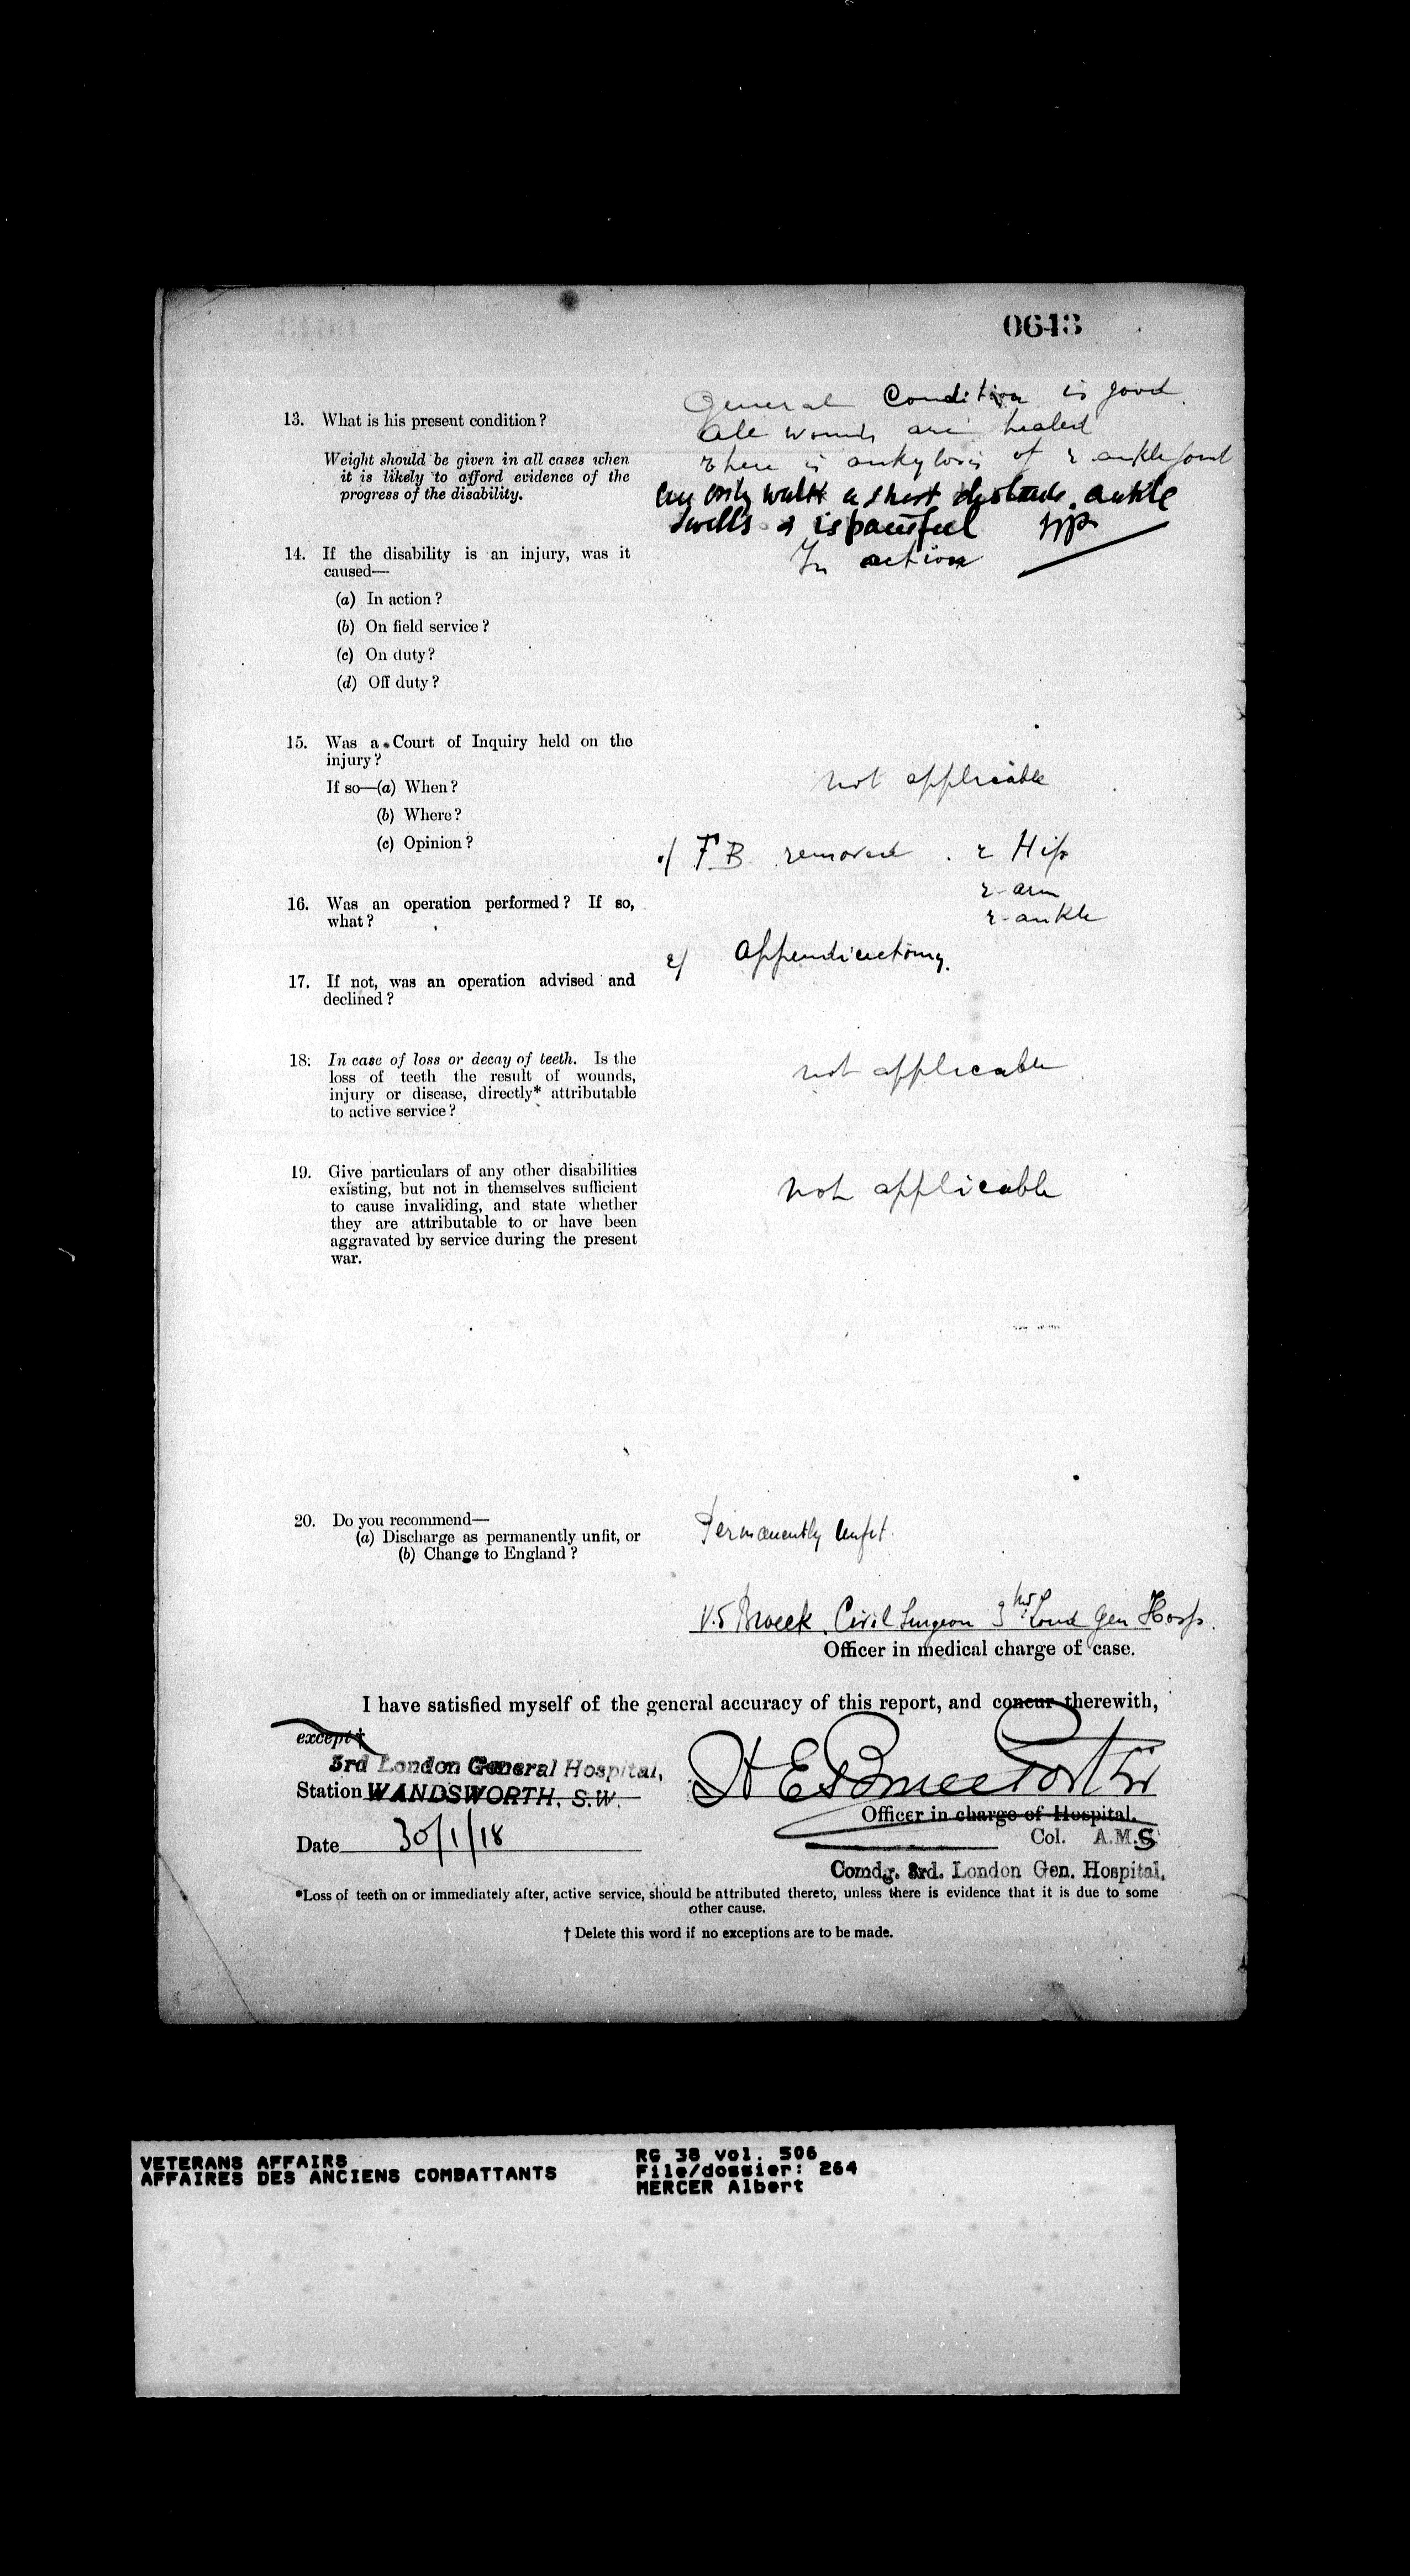 0643
General Condition is good.
13. What is his present condition?
All wounds are healed
Weight should be given in all cases when
There is ankylosis of r ankle joint
it is likely to afford evidence of the
progress of the disability.
Can only walk a short distance. ankle
swells & is painful
14. If the disability is an injury, was it
caused—
In action
(a) In action?
(b) On field service?
(c) On duty?
(d) Off duty?
15. Was a Court of Inquiry held on the
injury?
If so—(a) When?
not applicable
(b) Where?
(c) Opinion?
1/ F B removed . r Hip
r arm
16. Was an operation performed? If so,
what?
r ankle
2/ Appendicectomy.
17. If not, was an operation advised and
declined?
18. In case of loss or decay of teeth. Is the
loss of teeth the result of wounds,
injury or disease, directly* attributable
to active service?
not applicable
19. Give particulars of any other disabilities
existing, but not in themselves sufficient
to cause invaliding, and state whether
they are attributable to or have been
aggravated by service during the present
war.
not applicable
20. Do you recommend—
(a) Discharge as permanently unfit, or
(b) Change to England?
Permanently Unfit.
Civil Surgeon 3rd Lond Gen Hosp.
Officer in medical charge of case.
I have satisfied myself of the general accuracy of this report, and concur therewith,
except†
3rd London General Hospital,
Station WANDSWORTH, S.W.
H E Bruce Porter
Officer in charge of Hospital.
Date 30/1/18
Col. A.M.S
Comdg. 3rd. London Gen. Hospital.
*Loss of teeth on or immediately after, active service, should be attributed thereto, unless there is evidence that it is due to some
other cause.
† Delete this word if no exceptions are to be made.
VETERANS AFFAIRS
AFFAIRES DES ANCIENS COMBATTANTS
RG 38 vol. 506
File/dossier: 264
MERCER Albert